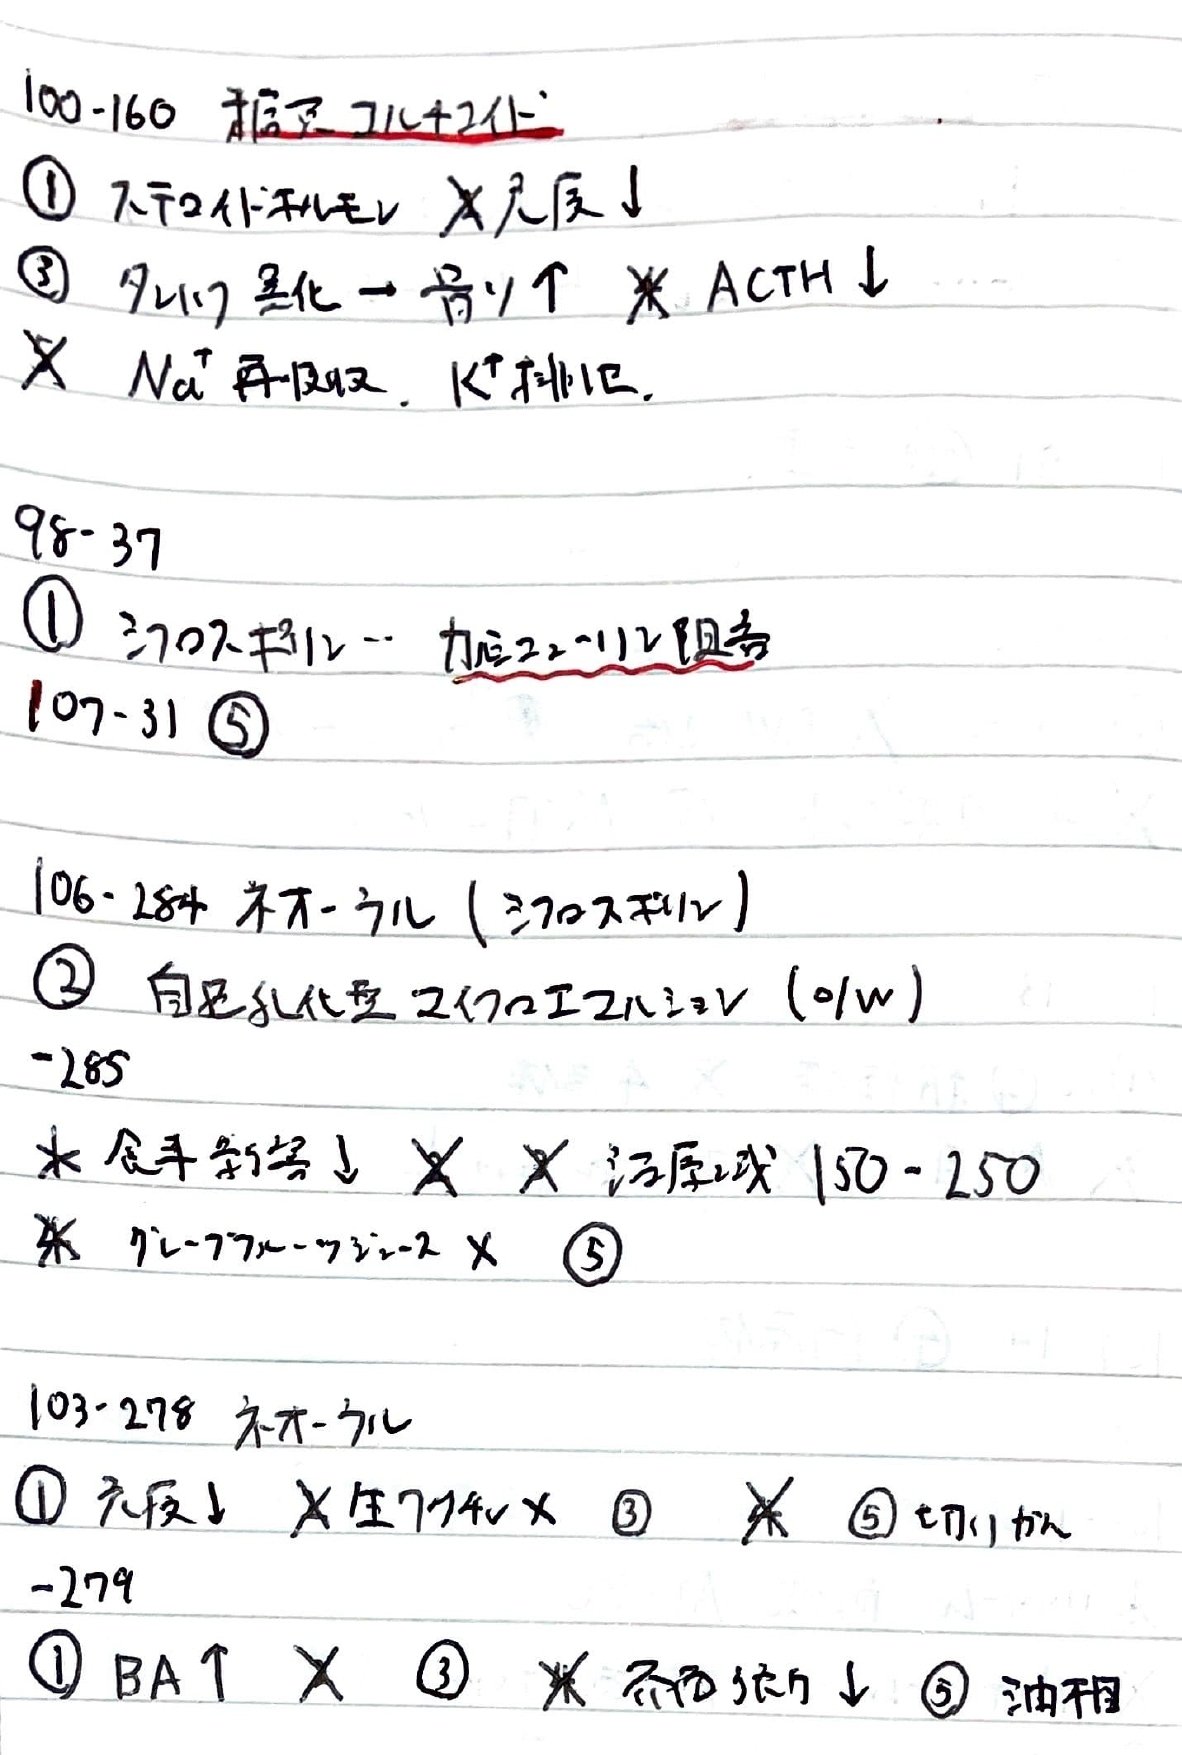 100-160 糖質コルチコイド
① ステロイドホルモン ✗ 免疫↓
③ タンパク異化 → 骨ソ↑ ✗ ACTH↓
✗ Na⁺再吸収. K⁺排泄.
98-37
① シクロスポリン… カルシニューリン阻害
107-31 ⑤
106-284 ネオーラル (シクロスポリン)
② 自己乳化型マイクロエマルション (o/w)
-285
✗ 食事影響↓ ✗ ✗ 治療域 150-250
✗ グレープフルーツジュース × ⑤
103-278 ネオーラル
① 免疫↓ ✗ 生ワクチン× ③ ✗ ⑤ 切りかえ
-279
① BA↑ ✗ ③ ✗ 界面張力↓ ⑤ 油相